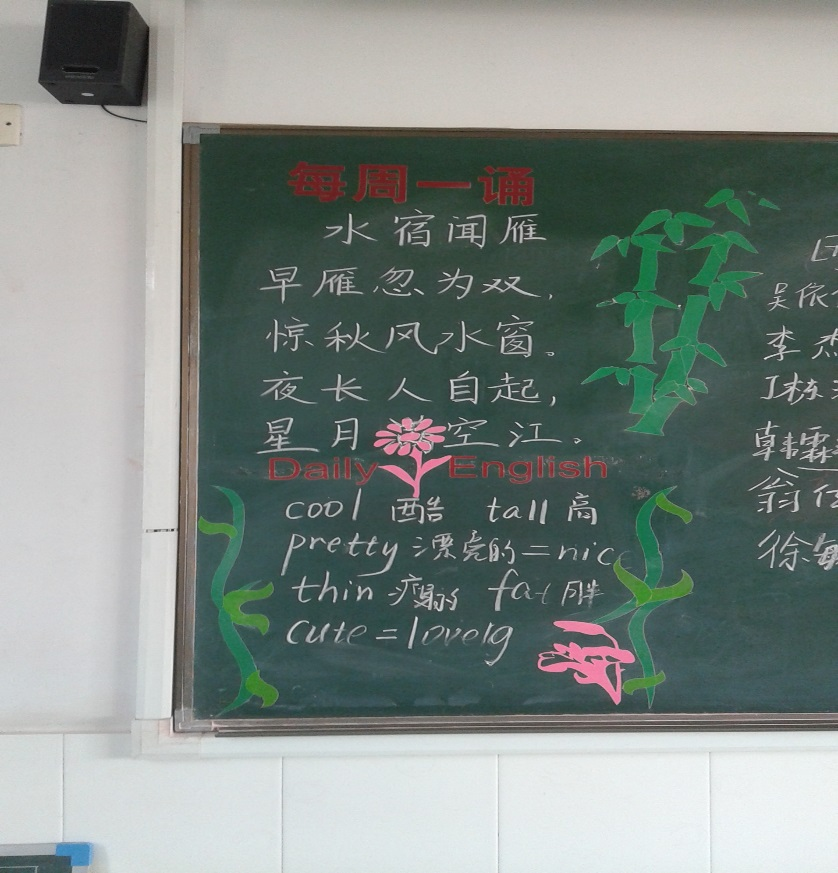 每周一诵
水宿闻雁
早雁忽为双，
惊秋风水窗。
夜长人自起，
星月满空江。
Daily English
cool 酷 tall 高
pretty 漂亮的 = nic
thin 瘦弱 fat 胖
cute = lovely
吴依
李杰
韩霖
翁
徐敏